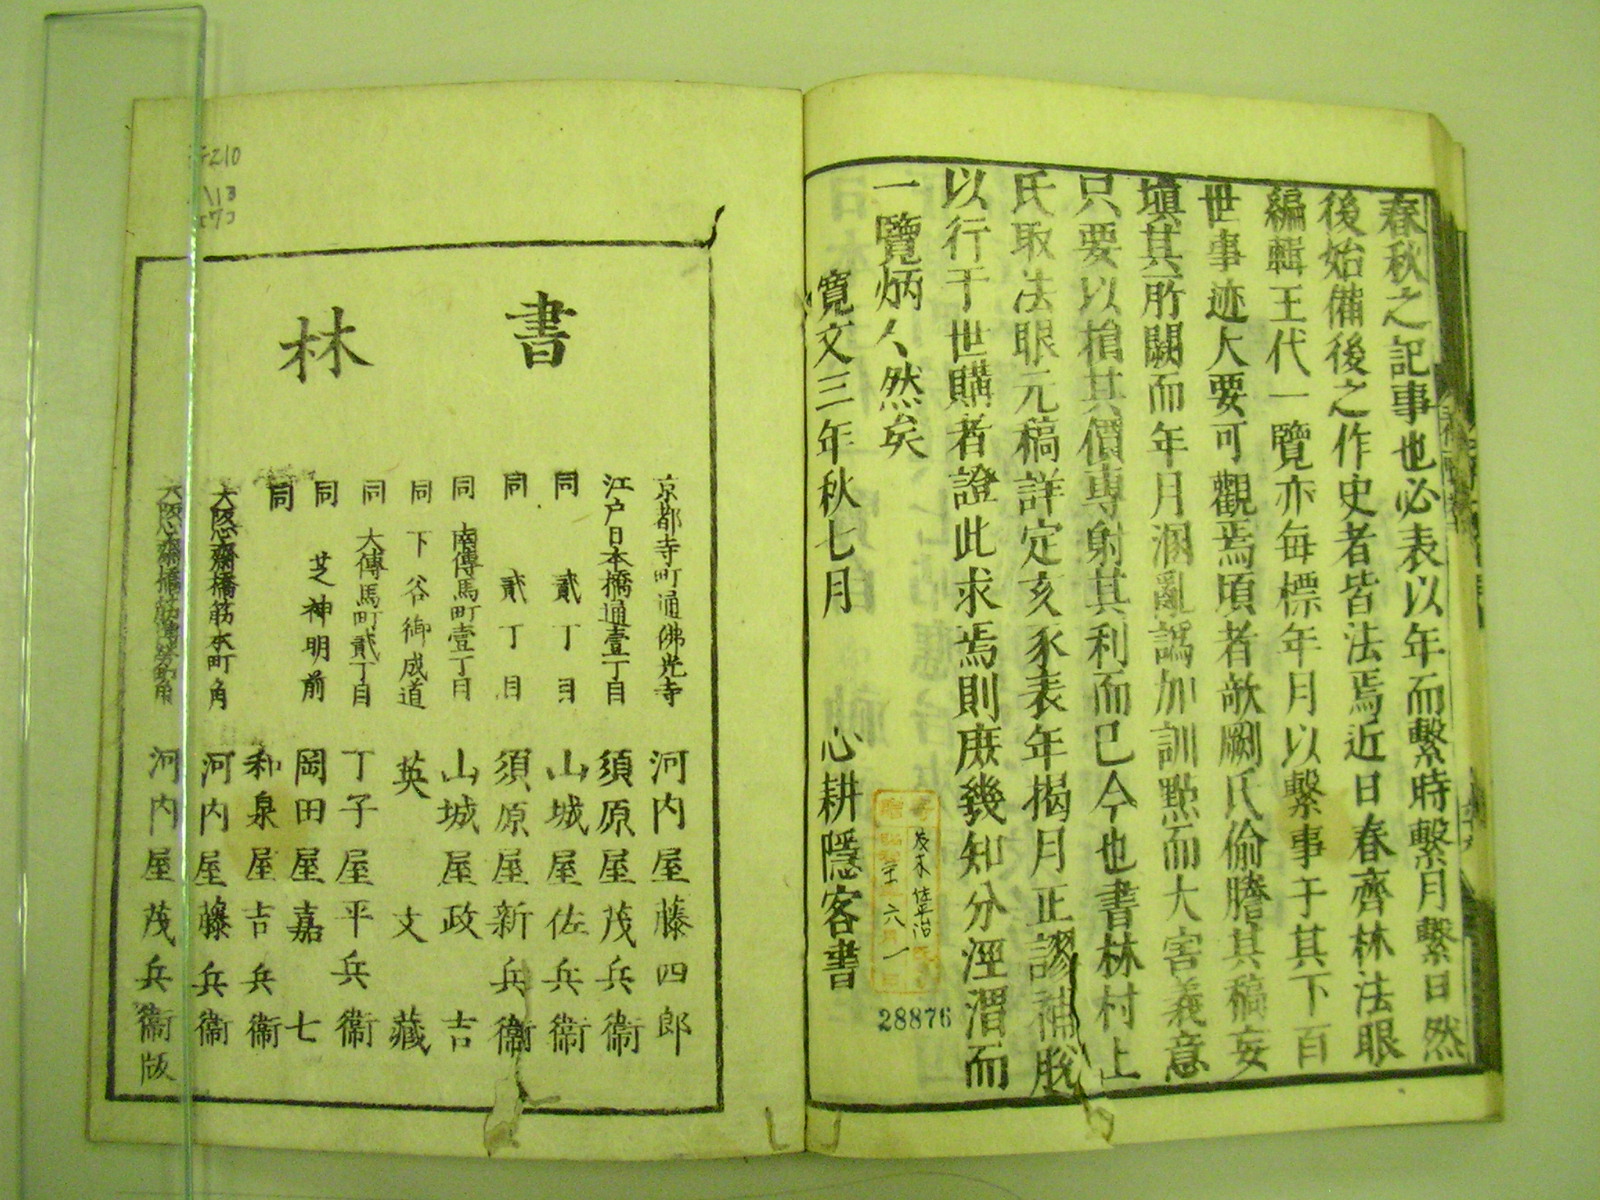 春秋之記事也必表以年而繫時繫月繫日然
後始備後之作史者皆法焉近日春齊林法眼
編輯王代一覽亦每標年月以繫事于其下百
世事迹大要可觀焉頃者敵劂氏偷謄其稿妄
塡其所闕而年月溷亂譌加訓㸃而大害義意
只要以槍其價專射其利而已今也書林村上
氏取法眼元稿詳定亥豕表年揭月正謬補脫
以行于世購者證此求焉則庶幾知分涇渭而
一覽炳〱然矣
寬文三年秋七月 心耕隱客書
六一
28876
210
書林
京都寺町通佛光寺 河内屋藤四郎
江户日本橋通壹丁目 須原屋茂兵衞
同 貳丁目 山城屋佐兵衞
同 貳丁目 須原屋新兵衞
同 南傳馬町壹丁目 山城屋政吉
同 下谷御成道 英文藏
同 大傳馬町貳丁目 丁子屋平兵衞
同 芝神明前 岡田屋嘉七
同 和泉屋吉兵衞
大阪心齋橋筋本町角 河内屋藤兵衞
大阪心齋橋筋博勞町角 河内屋茂兵衞版